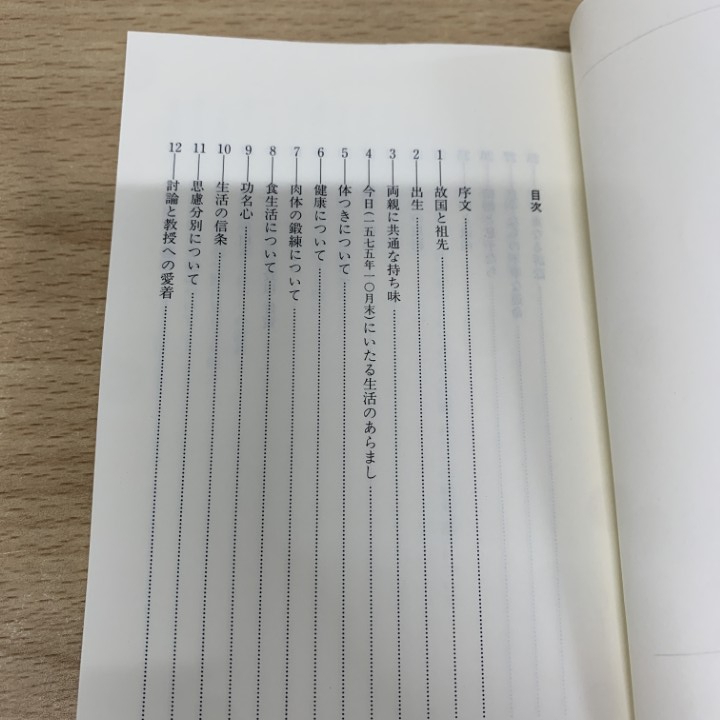 目次
序文
1――故国と祖先
2――出生
3――両親に共通な持ち味
4――今日(一五七五年一〇月末)にいたる生活のあらまし
5――体つきについて
6――健康について
7――肉体の鍛練について
8――食生活について
9――功名心
10――生活の信条
11――思慮分別について
12――討論と教授への愛着